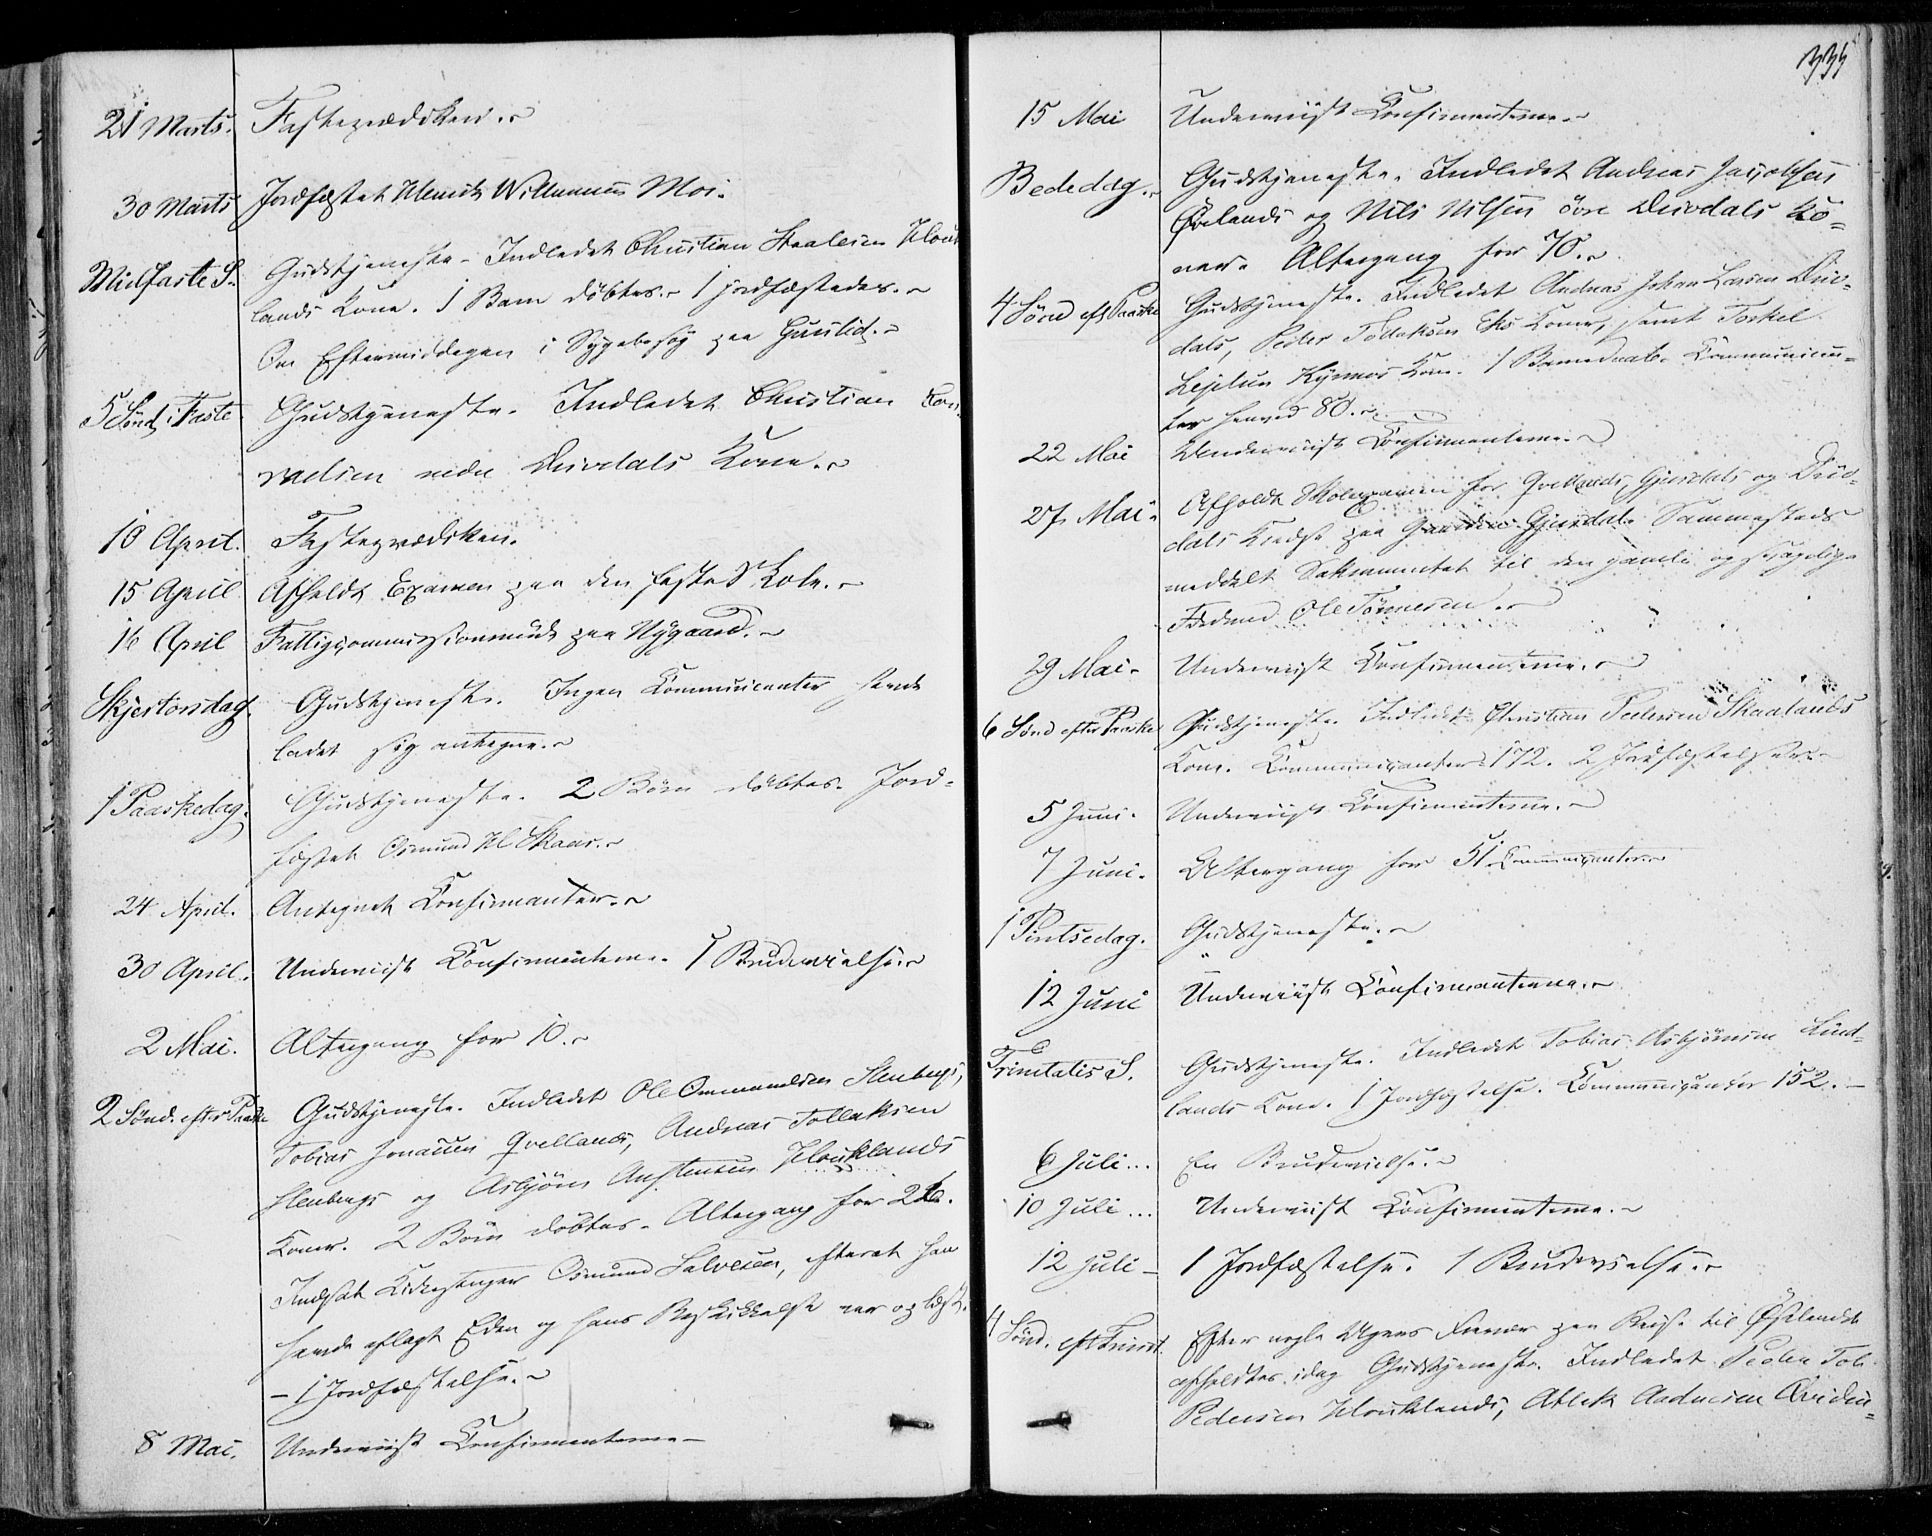 21 Marts. Fasteprædiken.
30 Marts Jordfæstet Henrik Willumsens Moi.
Midfaste S. Gudstjeneste. Indledet Christian Staalesen Houk
lands Kone. 1 Barn döbtes. 1 jordfæstedes.
Om Eftermiddagen i Sygebesøg paa
5 Sönd. i Faste Gudstjeneste. Indledet Christian Con
radsen nedre Drivdals Kone.
10 April. Fasteprædiken.
15 April Afholdt Examen paa den faste Skole.
16 April Fattigcommissionsmöde paa Nygaard.
Skjertorsdag. Gudstjeneste. Ingen Communicanter havde
ladet sig antegne.
1 Paaskedag. Gudstjeneste. 2 Börn döbtes. Jord-
fæstet Osmund Skaar.
24 April. Antegnet Confirmanter.
30 April. Underviist Confirmanterne. 1 Brudevielse.
2 Mai. Altergang for 10.
2 Sönd. efter Paaske Gudstjeneste. Indledet Ole Stenbergs,
Tobias Jonassen Qvellands, Andreas Tollaksen
Stenbergs og Asbjörn Austensen Houklands
Koner. 2 Börn döbtes. Altergang for 26.
Indsat Kirkesanger Osmund Salvesen, efterat han
havde aflagt Eden og hans Beskikkelse var oplæst.
- 1 Jordfæstelse.
8 Mai. Underviist Confirmanterne
335
15 Mai Underviist Confirmanterne.
Bededag. Gudstjeneste. Indledet Andreas Jacobsen
Øvlands og Nils Nilsen övre Drivdals Ko-
ner. Altergang for 70.
4 Sönd eft Paaske Gudstjeneste. Indledet Andreas Johan Larsen Driv-
dals, Peder Koner, samt Torkel
Kone. 1 Barnedaab. Communican-
ter henved 80.
22 Mai Underviist Confirmanterne.
27 Mai. Afholdt Skoleexamen for Qvellands, Gjusdals og Driv-
dals Kredse paa Gaarden Gjusdal. Sammesteds
meddelt Sakramentet til den gamle og svagelige
Ole Tönnesen.
29 Mai. Underviist Confirmanterne.
6 Sönd efter Paaske Gudstjeneste. Indledet Christian Pedersen Skaalands
Kone. Communicanter 172. 2 Jordfæstelser.
5 Juni. Underviist Confirmanterne.
7 Juni. Altergang for 51 Communicanter.
1 Pintsedag. Gudstjeneste.
12 Juni Underviist Confirmanterne.
Trinitatis S. Gudstjeneste. Indledet Tobias Asbjörnsen Lind-
lands Kone. 1 Jordfæstelse. Communicanter 152.
6 Juli... En Brudevielse.
10 Juli... Underviist Confirmanterne.
12 Juli - 1 Jordfæstelse. 1 Brudevielse.
4 Sönd. eft Trinit. Efter nogle Ugers Fravær paa Reise til Østlandet
afholdtes idag Gudstjeneste. Indledet Peder Tob.
Pedersen Houklands, Atlek Aadnesen